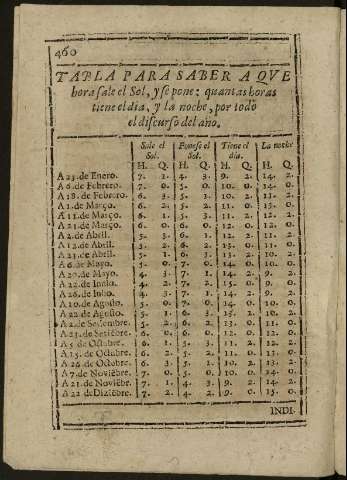 460
TABLA PARA SABER A QVE
hora sale el Sol, y se pone: quantas horas
tiene el dia, y la noche, por todo
el discurso del año.
Sale el Sol. Ponese el Sol. Tiene el dia. La noche
H. Q. H. Q. H. Q. H. Q.
A 23.de Enero. 7. 2. 4. 3. 9. 2. 14. 2.
A 6.de Febrero. 7. 0. 5. 0. 10. 0. 14. 0.
A 18.de Febrero. 6. 3. 5. 1. 10. 2. 13. 2.
A 1.de Março. 6. 2. 5. 2. 11. 0. 13. 0.
A 11.de Março. 6. 1. 5. 3. 11. 2. 12. 2.
A 21.de Março. 6. 0. 6. 0. 12. 0. 12. 0.
A 2.de Abril. 5. 3. 6. 1. 12. 2. 11. 2.
A 12.de Abril. 2. 6. 2. 13. 0. 11. 0.
A 23.de Abril. 5. 1. 6. 3. 13. 2. 10. 2.
A 6.de Mayo. 5. 0. 7. 0. 14. 0. 10. 0.
A 20.de Mayo. 4. 3. 7. 1. 14. 2. 9. 2.
A 22.de Iunio. 4. 2. 7. 2. 15. 0. 9. 0.
A 26.de Iulio. 4. 3. 7. 1. 14. 2. 9. 2.
A 10.de Agosto. 5. 0. 7. 0. 14. 0. 10. 0.
A 22.de Agosto. 5. 1. 6. 3. 2. 10. 2.
A 2.de Setiembre. 5. 2. 6. 2. 13. 0. 11. 0.
A 23.de Setiēbre. 6. 0. 6. 0. 12. 0. 12. 0.
A 5.de Octubre. 6. 1. 5. 3. 11. 2. 12. 2.
A 15.de Octubre. 6. 2. 5. 2. 11. 0. 13. 0.
A 26.de Octubre. 6. 3. 5. 1. 10. 2. 13. 2.
A 7.de Noviēbre. 7. 0. 5. 0. 10. 0. 14. 0.
A 21.de Noviēbre. 7. 1. 4. 3. 9. 2. 14. 2.
A 22.de Diziēbre. 7. 2. 4. 2. 9. 0. 15. 0.
INDI-